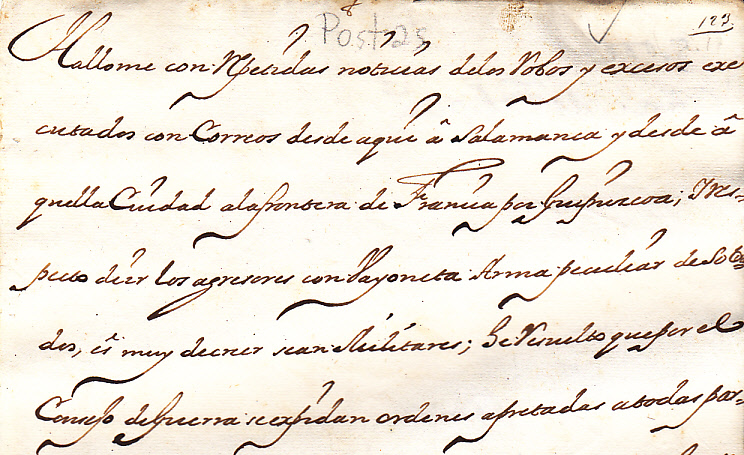 Post 25
123
Hallome con Repetidas noticias delos Robos y excesos exe
cutados con Correos desde aqui â Salamanca y desde â
quella Ciudad ala frontera de Francia por Guipuzcoa; I res-
pecto de ir los agresores con Bayoneta Arma peculiar de Solda
dos, ês muy de creer sean Militares; He Resuelto que por el
Consejo de Guerra se expidan ordenes apretadas a todas par-